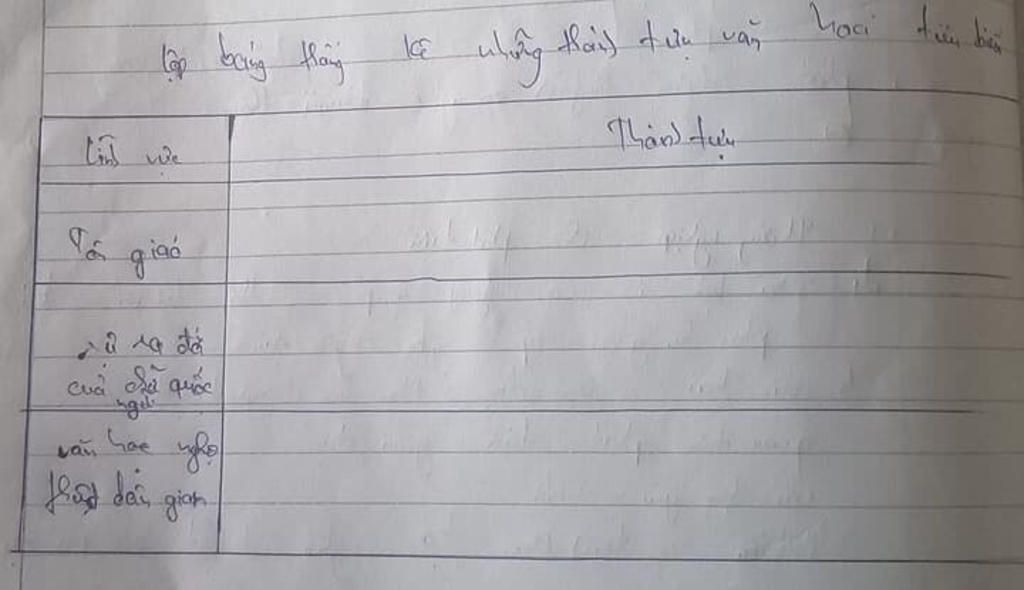 lập bảng thống kê những thành tựu văn hoá tiêu biểu
Lĩnh vực
Thành tựu
Tôn giáo
sự ra đời
của chữ quốc
ngữ
văn học nghệ
thuật dân gian